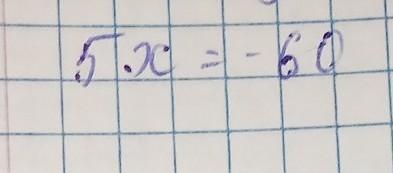 5x = -60